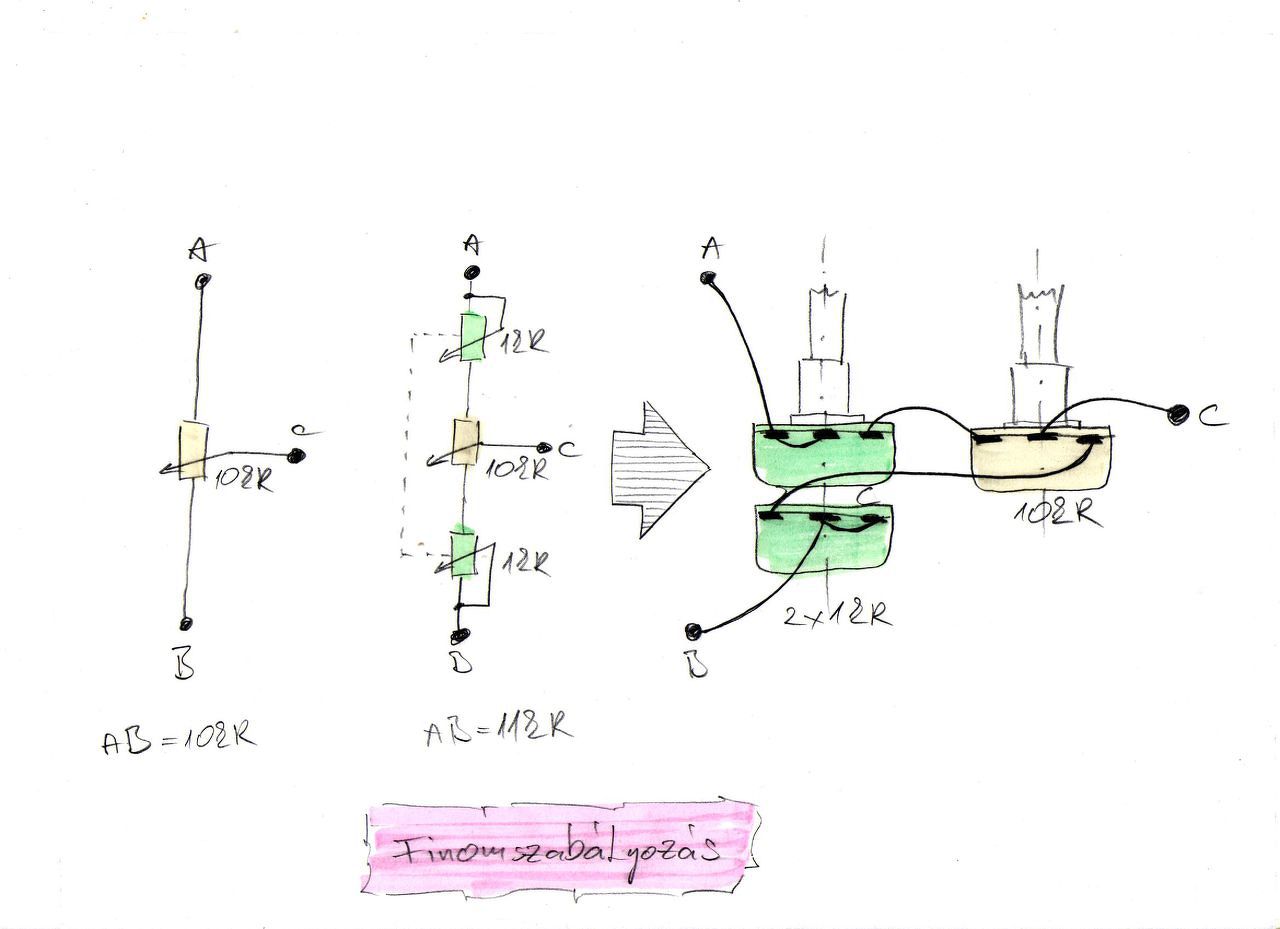 A
C
10kR
B
AB=10kR
A
1kR
C
10kR
1kR
B
AB=11kR
A
C
C
10kR
2x1kR
B
Finomszabályozás